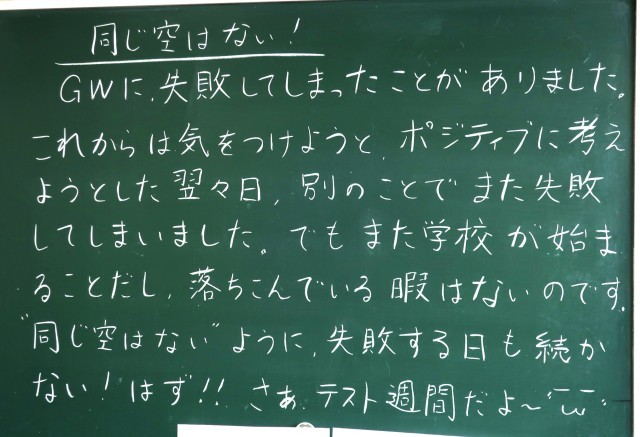 同じ空はない！
GWに、失敗してしまったことがありました。
これからは気をつけようと、ポジティブに考え
ようとした翌々日、別のことでまた失敗
してしまいました。でもまた学校が始ま
ることだし、落ちこんでいる暇はないのです。
"同じ空はない"ように、失敗する日も続か
ない！はず！！さぁ、テスト週間だよ〜